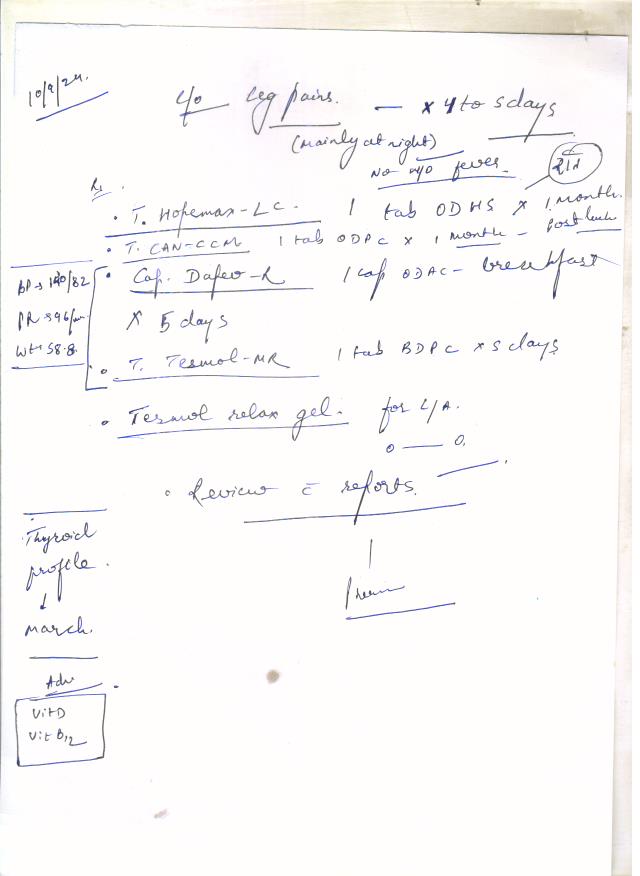 10/9/24.
c/o leg pains. — x 4 to 5 days
(mainly at night)
No h/o fever.
Rx.
• T. Hopemax-LC. 1 tab ODHS x 1 month.
• T. CAN-CCM 1 tab ODPC x 1 month - Post lunch
BP → /82
• Cap. Dafev-R 1 cap ODAC - breakfast
PR → 96/m
x 5 days
Wt → 58.8.
• T. Tesmol-MR 1 tab BDPC x 5 days
• Tesmol relax gel. for L/A.
o — o.
• Review c̄ reports.
Thyroid
profile.
↓
march.
Adv
Vit D
Vit B12